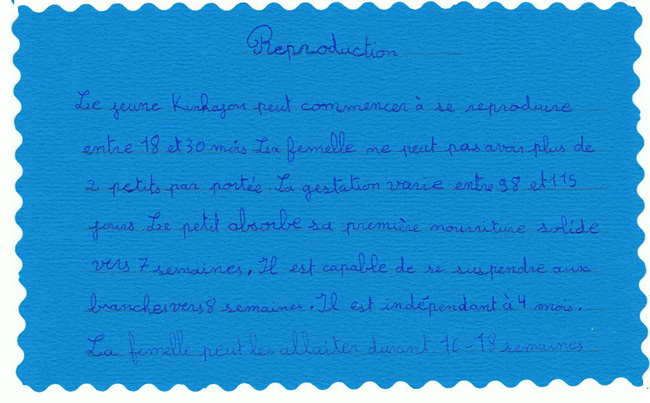 Reproduction
Le jeune Kinkajou peut commencer à se reproduire
entre 18 et 30 mois La femelle ne peut pas avoir plus de
2 petits par portée. La gestation varie entre 98 et 115
jours. Le petit absorbe sa première nourriture solide
vers 7 semaines. Il est capable de se suspendre aux
branches vers 8 semaines. Il est indépendant à 4 mois.
La femelle peut les allaiter durant 16-18 semaines